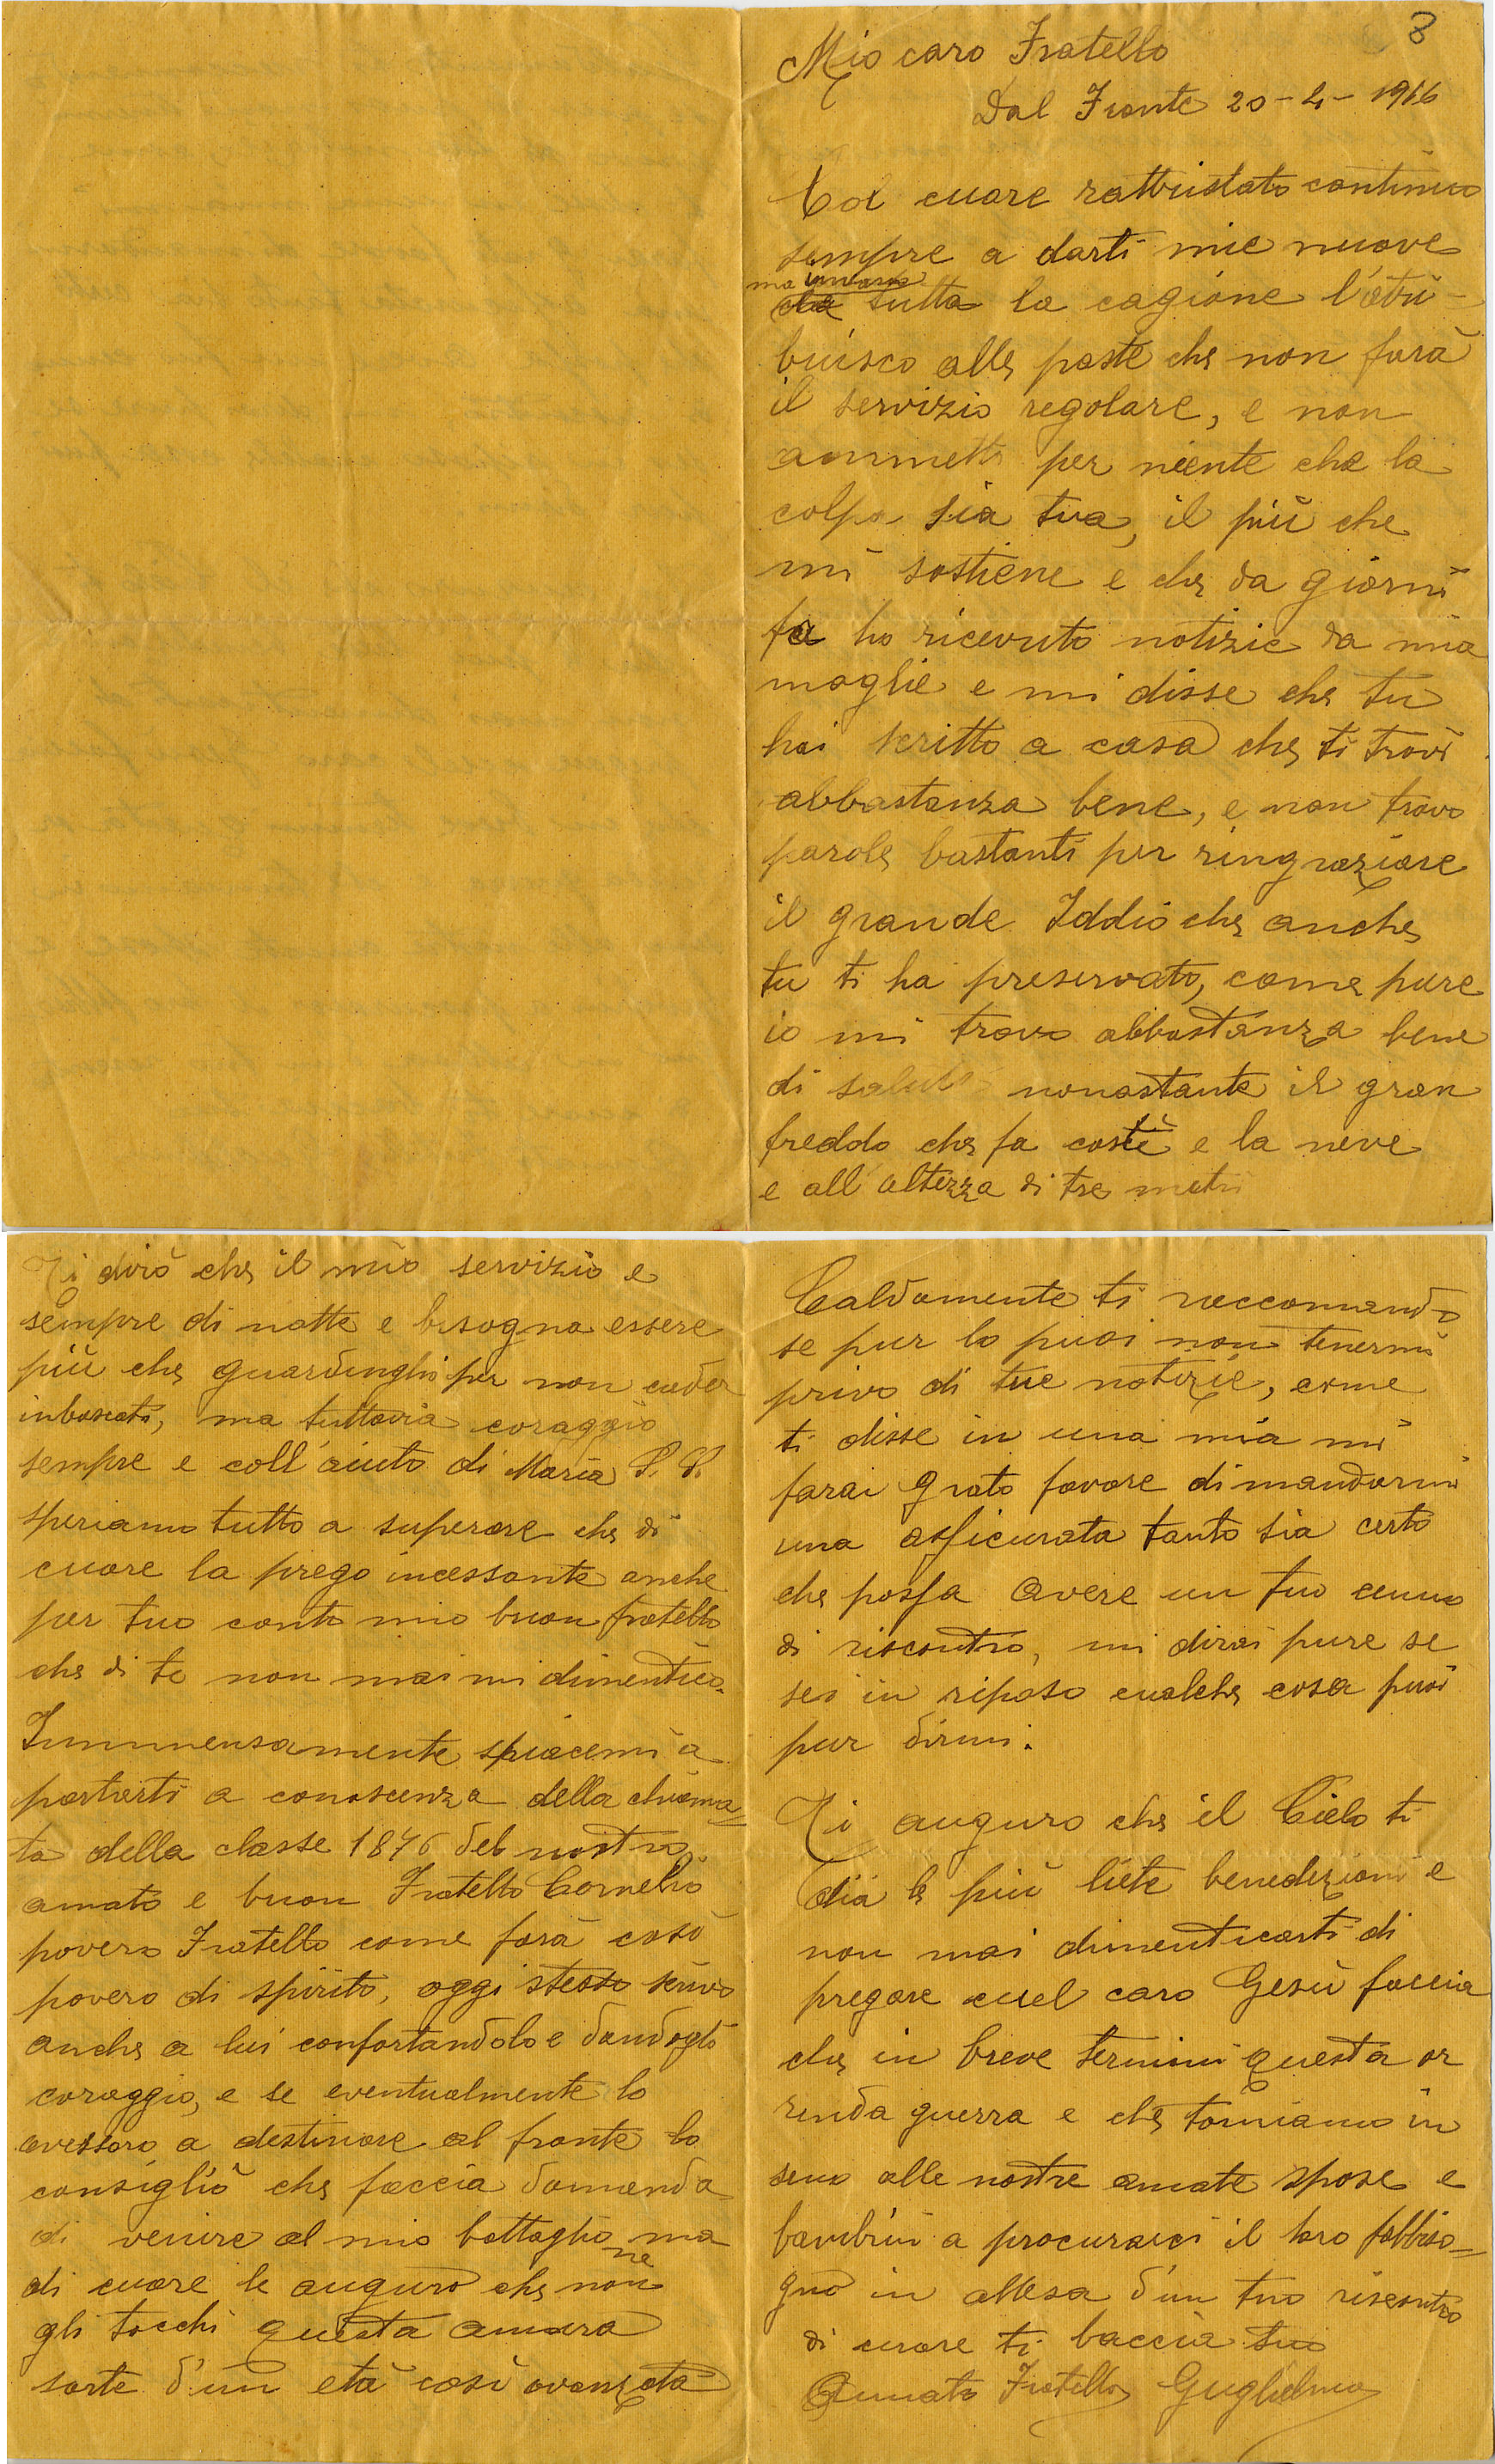 8
Mio caro Fratello
Dal Fronte 20-4-1916
Col cuore rattristato continuo
sempre a darti mie nuove
ma invano
che tutta la cagione l'atri-
buisco alle poste che non farà
il servizio regolare, e non
ammetto per niente che la
colpa sia tua, il più che
mi sostiene e che da giorni
fa ho ricevuto notizie da mia
moglie e mi disse che tu
hai scritto a casa che ti trovi
abbastanza bene, e non trovo
parole bastanti per ringraziare
il grande Iddio che anche
tu ti ha preservato, come pure
io mi trovo abbastanza bene
di salute nonostante il gran
freddo che fa costì e la neve
e all'altezza di tre metri
Ti dirò che il mio servizio e
sempre di notte e bisogna essere
più che guardinghi per non cader
inboscati, ma tuttavia coraggio
sempre e coll'aiuto di Maria S. S.
speriamo tutto a superare che di
cuore la prego incessante anche
per tuo conto mio buon fratello
che di te non mai mi dimentico.
Immensamente spiacemi a
portarti a conoscenza della chiama=
ta della classe 1876 del nostro
amato e buon Fratello Cornelio
povero Fratello come farà così
povero di spirito, oggi stesso scrivo
anche a lui confortandolo e dandogli
coraggio, e se eventualmente lo
avessero a destinare al fronte lo
consiglio che faccia domanda
di venire al mio battaglione ma
di cuore le auguro che non
gli tocchi questa amara
sorte d'un età così avanzata
Caldamente ti raccomando
se pur lo puoi non tenermi
privo di tue notizie, come
ti disse in una mia mi
farai grato favore di mandarmi
una assicurata tanto sia certo
che possa avere un tuo cenno
di riscontro, mi dirai pure se
sei in riposo cualche cosa puoi
pur dirmi.
Ti auguro che il Cielo ti
dia le più liete benedizioni e
non mai dimenticarti di
pregare cuel caro Gesù faccia
che in breve termini questa or
renda guerra e che torniamo in
seno alle nostre amate spose e
bambini a procurarci il loro fabbiso=
gno in attesa d'un tuo riscontro
di cuore ti baccia tuo
Amato Fratello Guglielmo